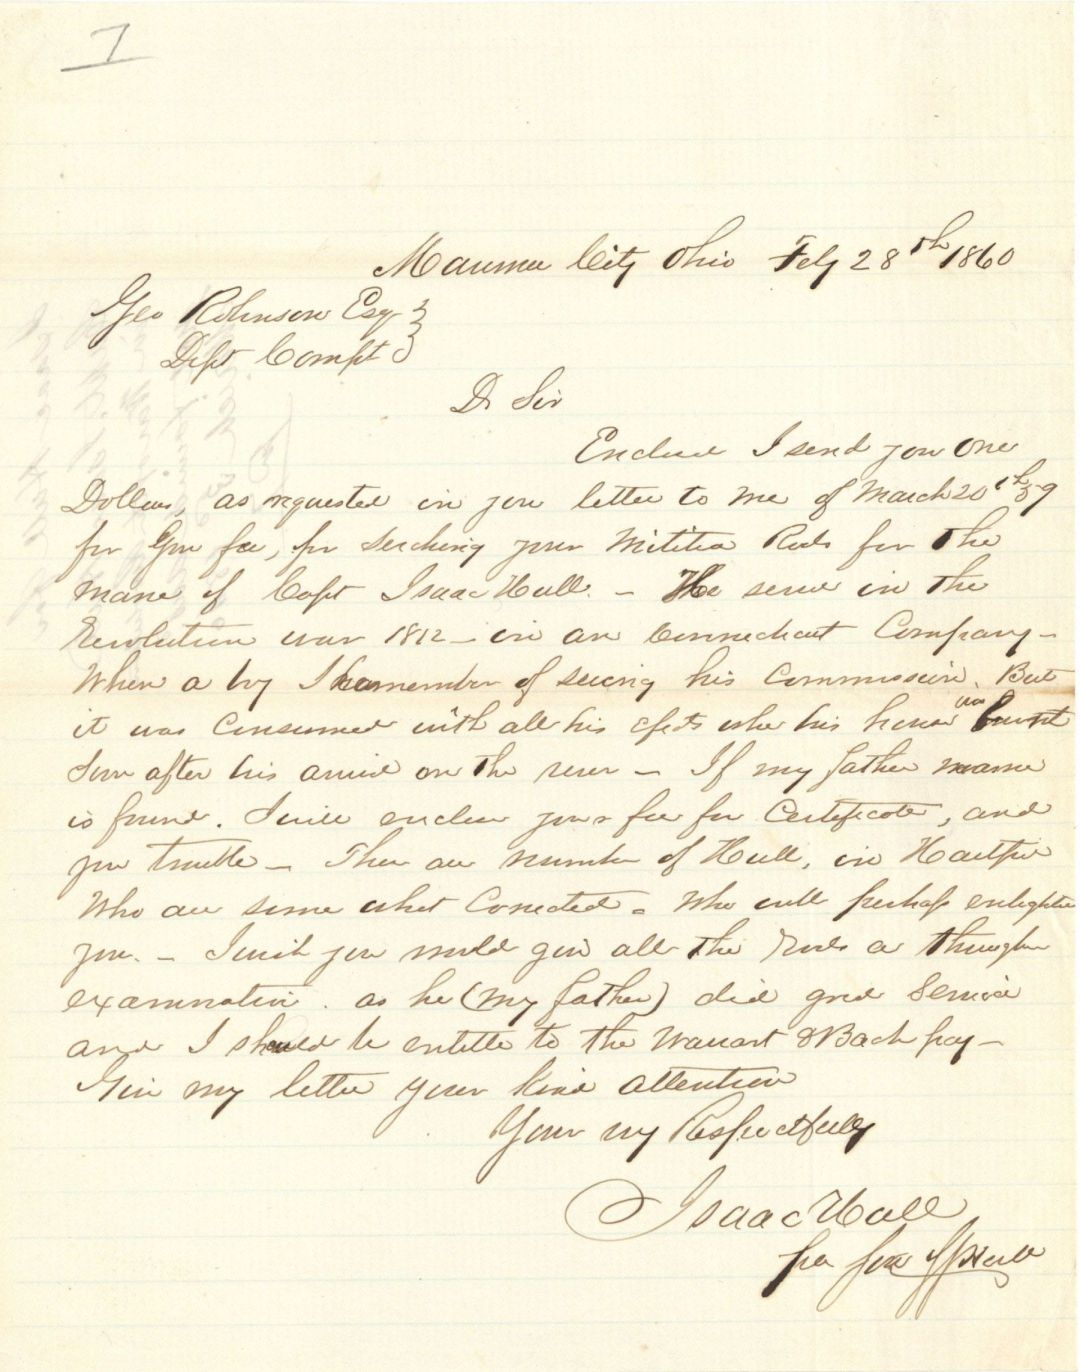 7
Maumee City Ohio Feby 28th 1860
Geo Robinson Esq
Dept Compt
Dr Sir
Enclosed I send you One
Dollars, as requested in your letter to me of March 20th 59
for your fee, for Serching your Militia Rools for the
name of Capt Isaac Hull. - He serve in the
Revolution war 1812 - in an Connecticut Company -
When a boy I remember of seeing his Commission. But
it was Consumed with all his efects when his house was burnt
Soon after his arrive on the reser - If my father name
is found. I will enclose your fee for Certificate, and
your trouble - There are number of Hull, in Hartford
Who are some what Conected. Who will perhaps enlighten
you. - I wish you would give all the Rools a through
examination. as he (my father) did good Service
and I should be entitle to the Warrant & Back pay -
Give my letter your kind attention
Your very Respectfully
Isaac Hull
per J Hull